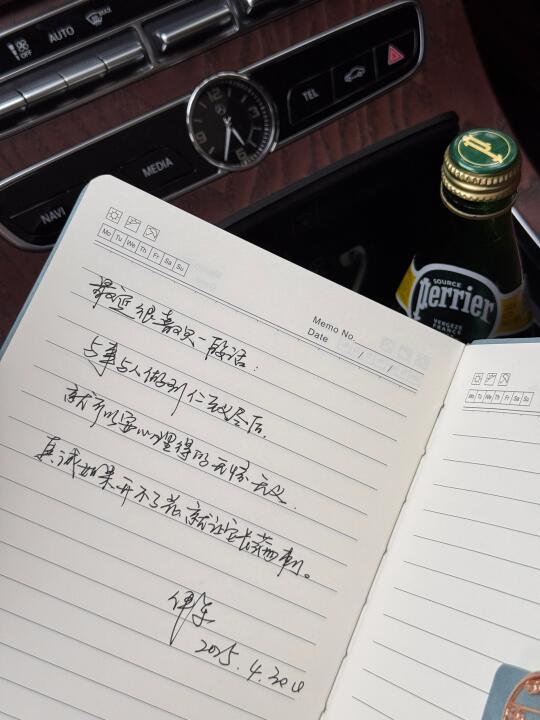 OFF
AUTO
TEL
MEDIA
NAVI
12
SOURCE
perrier
VERGEZE
FRANCE
Mo Tu We Th Fr Sa Su
Memo No.
Date / /
最近很喜欢一段话:
与事与人做到仁至义尽后,
就可以安心理得的无情无义.
真诚如果开不了花,就让它长满荆刺。
2025.4.30
Mo Tu We Th Fr Sa Su